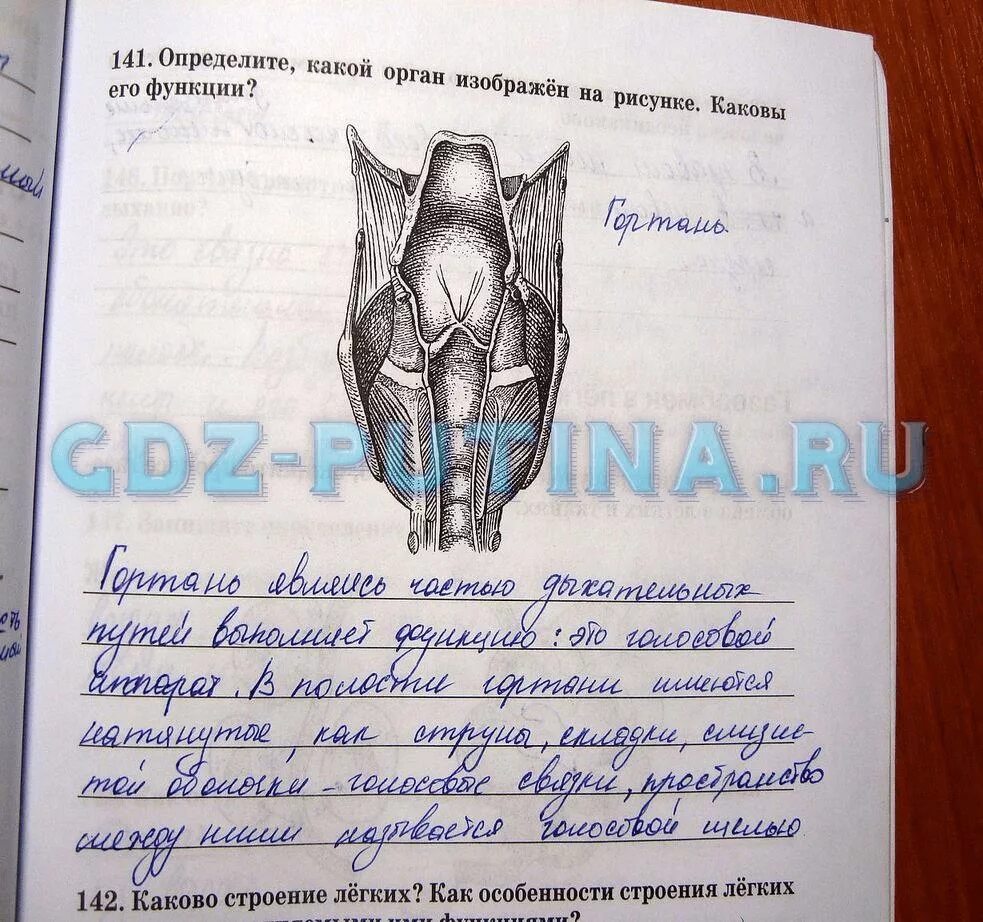 141. Определите, какой орган изображён на рисунке. Каковы
его функции?
Гортань.
GDZ-PUTINA.RU
Гортань являясь частью дыхательных
путей выполняет функцию: это голосовой
аппарат. В полости гортани имеются
натянутые, как струны, складки, слизис-
той оболочки – голосовые связки, пространство
между ними называется голосовой щелью
142. Каково строение лёгких? Как особенности строения лёгких
ими функциями?